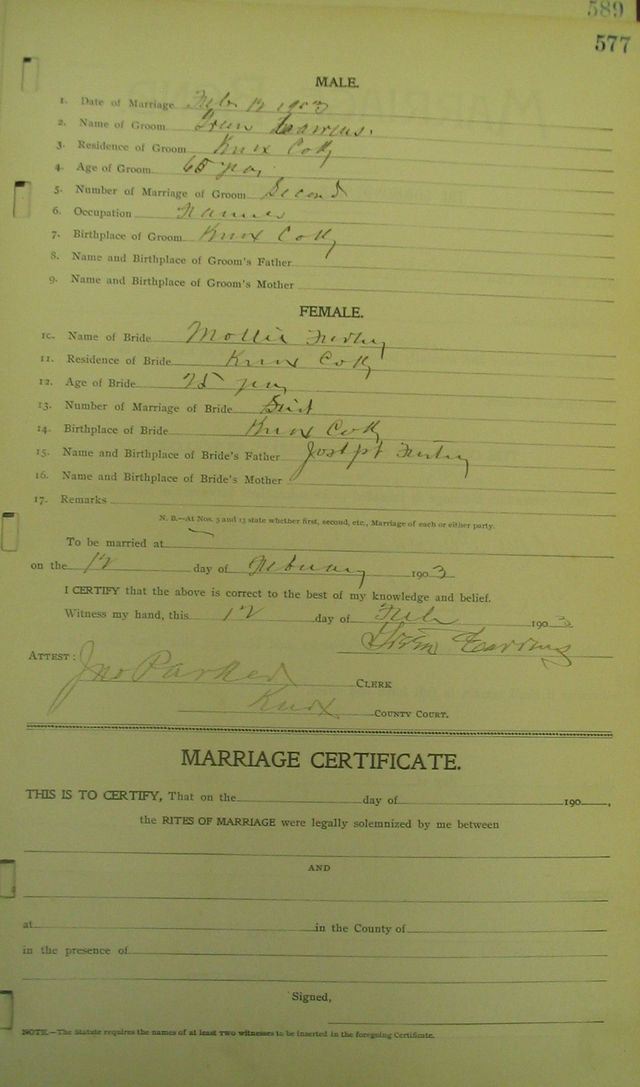 589
577
MALE.
1. Date of Marriage Feb 12 1903
2. Name of Groom
3. Residence of Groom Knox Co Ky
4. Age of Groom 65 yrs
5. Number of Marriage of Groom Second
6. Occupation Farmer
7. Birthplace of Groom Knox Co Ky
8. Name and Birthplace of Groom's Father
9. Name and Birthplace of Groom's Mother
FEMALE.
10. Name of Bride Mollie
11. Residence of Bride Knox Co Ky
12. Age of Bride 25 yrs
13. Number of Marriage of Bride First
14. Birthplace of Bride Knox Co Ky
15. Name and Birthplace of Bride's Father Joseph
16. Name and Birthplace of Bride's Mother
17. Remarks
N. B.—At Nos. 5 and 13 state whether first, second, etc., Marriage of each or either party.
To be married at
on the 12 day of February 1903
I CERTIFY that the above is correct to the best of my knowledge and belief.
Witness my hand, this 12 day of Feb 1903
ATTEST:
Jno Parker CLERK
Knox COUNTY COURT.
MARRIAGE CERTIFICATE.
THIS IS TO CERTIFY, That on the day of 190 ,
the RITES OF MARRIAGE were legally solemnized by me between
AND
at in the County of
in the presence of
Signed,
NOTE.—The Statute requires the names of at least two witnesses to be inserted in the foregoing Certificate.